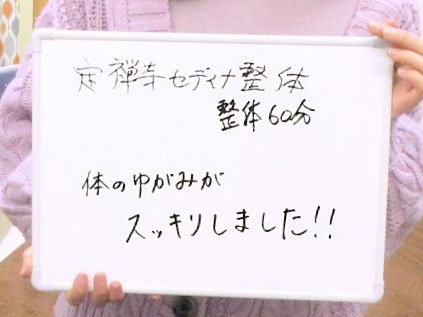 定禅寺セディナ整体
整体60分
体のゆがみが
スッキリしました!!